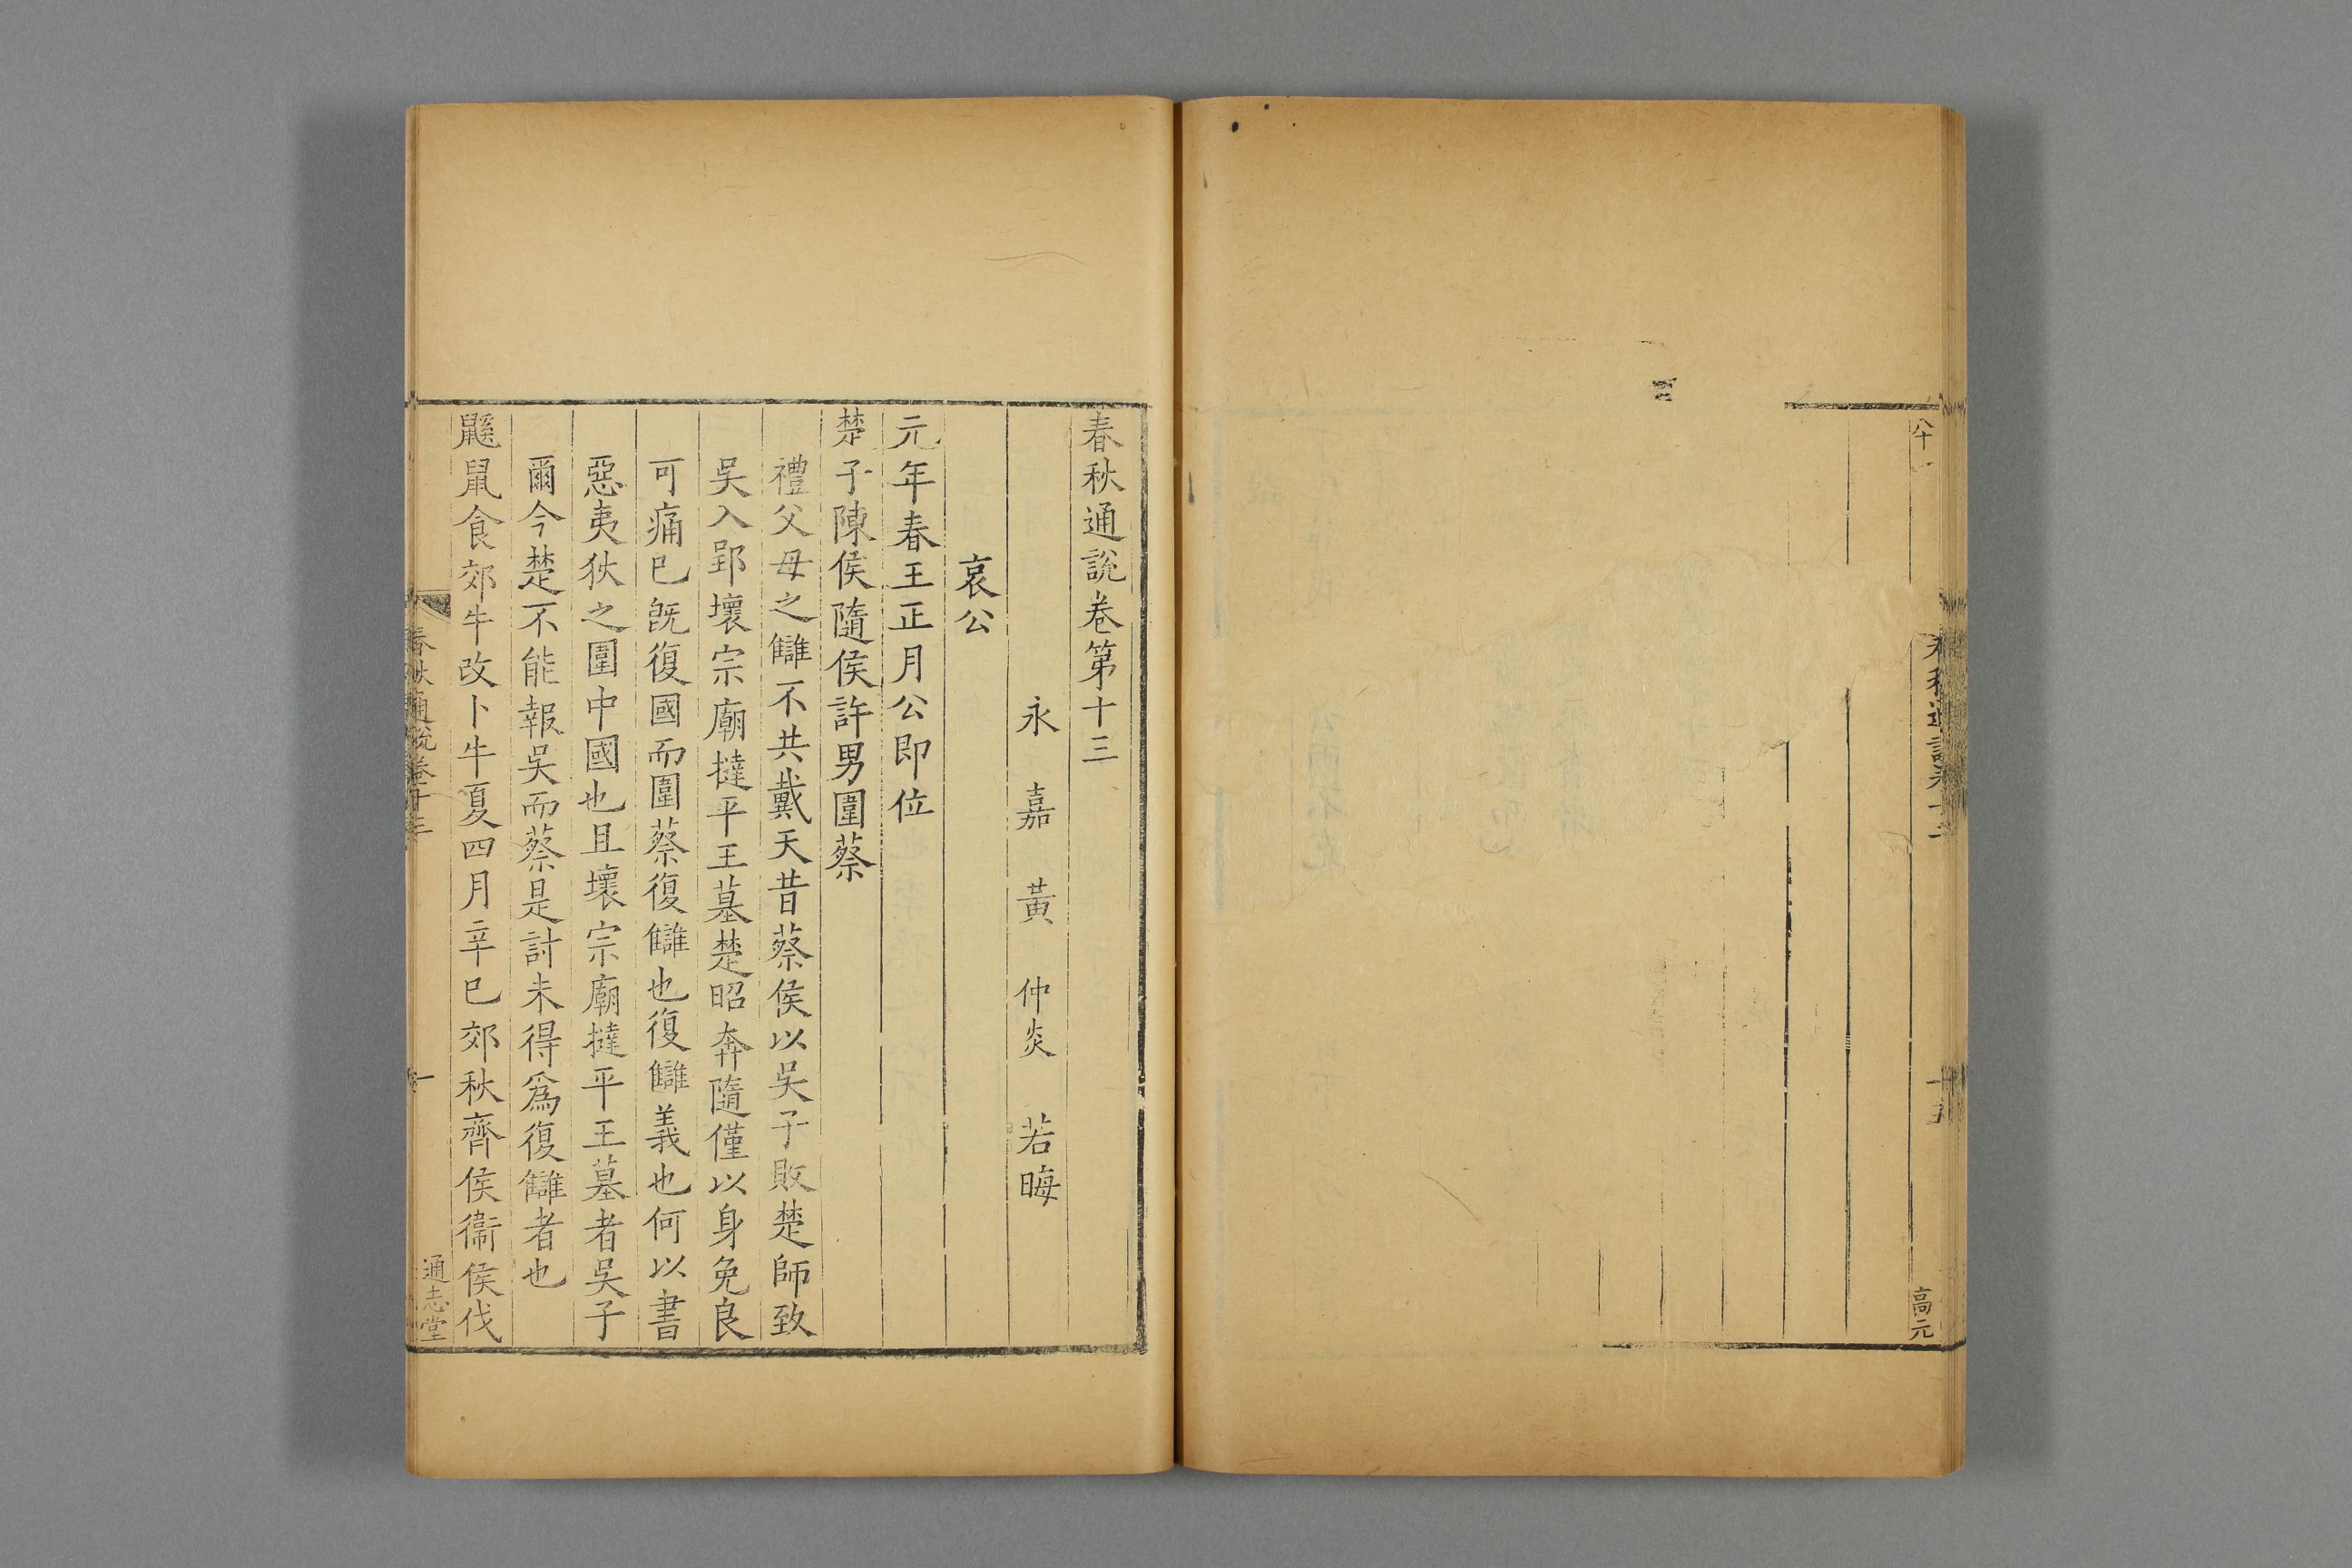 八十一
春秋通說卷十二
十五
高元
春秋通說卷第十三
永嘉黃仲炎若晦
哀公
元年春王正月公即位
楚子陳侯隨侯許男圍蔡
禮父母之讎不共戴天昔蔡侯以吳子敗楚師致
吳入郢壞宗廟撻平王墓楚昭奔隨僅以身免良
可痛已旣復國而圍蔡復讎也復讎義也何以書
惡夷狄之圍中國也且壞宗廟撻平王墓者吳子
爾今楚不能報吳而蔡是討未得爲復讎者也
鼷鼠食郊牛改卜牛夏四月辛巳郊秋齊侯衞侯伐
春秋通說卷十三
一
通志堂